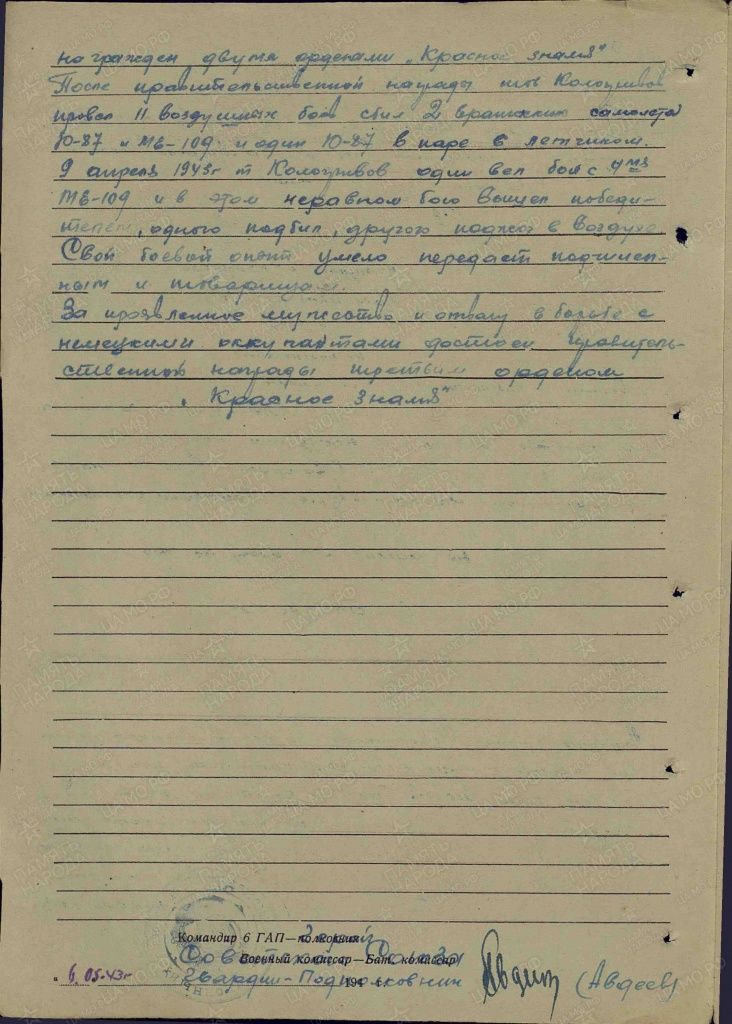 награжден двумя орденами „Красное знамя"
После правительственной награды тов Кологривов
провел 11 воздушных боев сбил 2 вражеских самолета
Ю-87 и МЕ-109 и один Ю-87 в паре с летчиком.
9 апреля 1943г т Кологривов один вел бой с 4мя
МЕ-109 и в этом неравном бою вышел победи-
телем, одного подбил, другого поджог в воздухе.
Свой боевой опыт умело передает подчинен-
ным и товарищам.
За проявленное мужество и отвагу в борьбе с
немецкими оккупантами достоен правитель-
ственной награды третьим орденом
„Красное знамя"
Герой
Командир 6 ГАП—полковник
Советского Союза
Военный комиссар—Бат. комиссар
Гвардии-Подполковник Авдеев (Авдеев)
„6.05.43г 194 г.